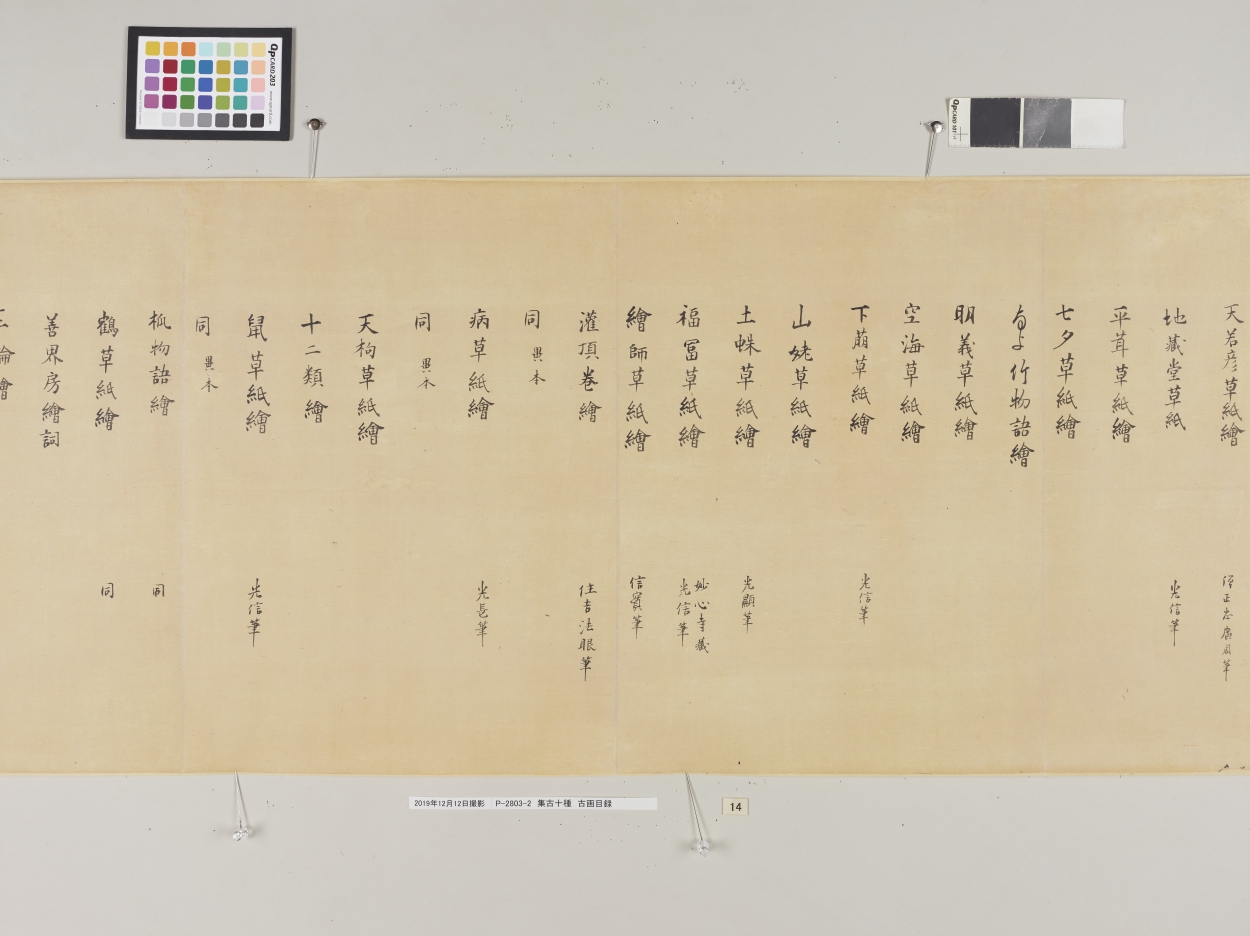 天若彦草紙繪
地藏堂草紙
光信筆
平茸草紙繪
七夕草紙繪
なよ竹物語繪
明義草紙繪
空海草紙繪
下萠草紙繪
光信筆
山姥草紙繪
土蛛草紙繪
光顯筆
福冨草紙繪
妙心寺藏
光信筆
繪師草紙繪
信實筆
灌頂卷繪
住吉法眼筆
同 異本
病草紙繪
光長筆
同 異本
天狗草紙繪
十二類繪
鼠草紙繪
光信筆
同 異本
狐物語繪
同
鶴草紙繪
同
善界房繪詞
2019年12月12日撮影 P-2803-2 集古十種 古画目録
14
QPCARD 203
QPCARD 101